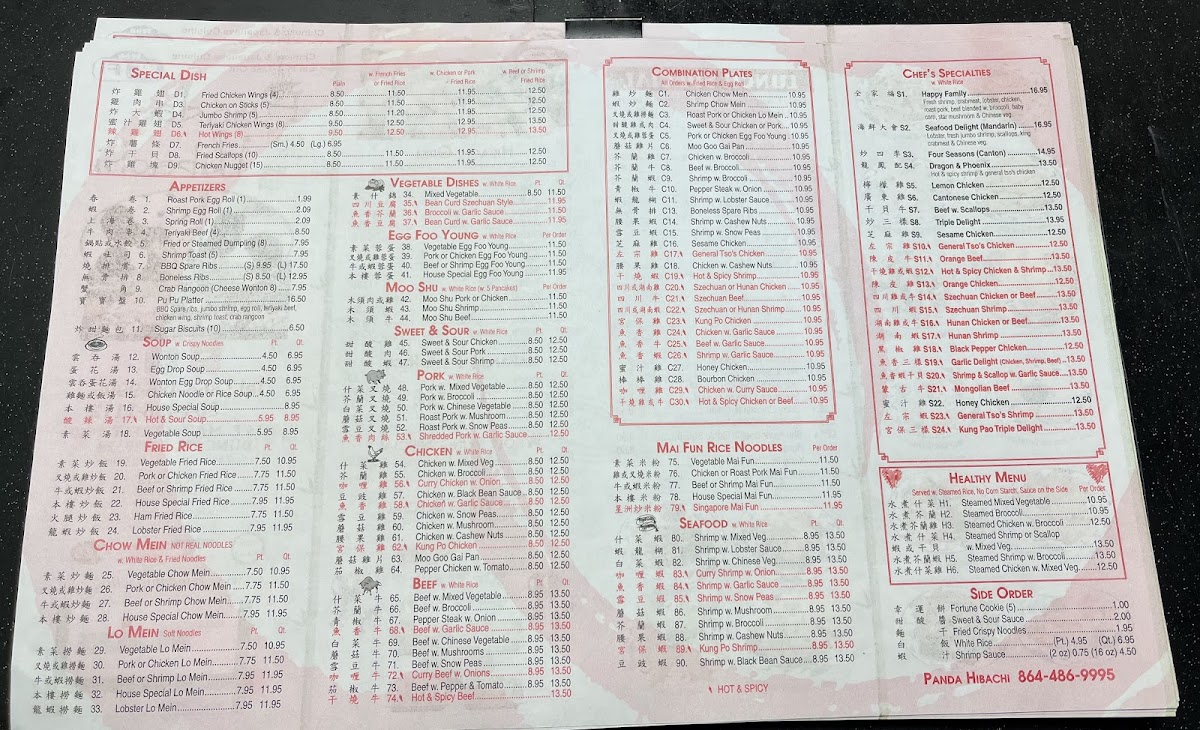 SPECIAL DISH
Plain
w. French Fries or Fried Rice
w. Chicken or Pork Fried Rice
w. Beef or Shrimp Fried Rice
炸雞翅 D1. Fried Chicken Wings (4) 8.50 11.50 11.95 12.50
雞肉串 D3. Chicken on Sticks (5) 8.50 11.50 11.95 12.50
炸大蝦 D4. Jumbo Shrimp (5) 8.50 11.20 11.95 12.50
蜜汁雞翅 D5. Teriyaki Chicken Wings (8) 9.50 12.50 12.95 13.50
辣雞翅 D6. Hot Wings (8) 9.50 12.50 12.95 13.50
炸薯條 D7. French Fries (Sm.) 4.50 (Lg.) 6.95
炸干貝 D8. Fried Scallops (10) 8.50 11.50 11.95 12.50
炸雞塊 D9. Chicken Nugget (15) 8.50 11.50 11.95 12.50
APPETIZERS
春卷 1. Roast Pork Egg Roll (1) 1.99
蝦卷 2. Shrimp Egg Roll (1) 2.09
上海卷 3. Spring Roll (1) 2.09
牛肉串 4. Teriyaki Beef (4) 8.50
鍋貼或水餃 5. Fried or Steamed Dumpling (8) 7.95
蝦吐司 6. Shrimp Toast (5) 7.95
燒排骨 7. BBQ Spare Ribs (S) 9.95 (L) 17.50
無骨排 8. Boneless Ribs (S) 8.50 (L) 12.95
蟹角 9. Crab Rangoon (Cheese Wonton 8) 7.95
寶寶盤 10. Pu Pu Platter 16.50
BBQ Spare ribs, jumbo shrimp, egg roll, teriyaki beef, chicken wing, shrimp toast, crab rangoon
炸甜麵包 11. Sugar Biscuits (10) 6.50
SOUP w. Crispy Noodles
Pt. Qt.
雲吞湯 12. Wonton Soup 4.50 6.95
蛋花湯 13. Egg Drop Soup 4.50 6.95
雲吞蛋花湯 14. Wonton Egg Drop Soup 4.50 6.95
雞麵或飯湯 15. Chicken Noodle or Rice Soup 4.50 6.95
本樓湯 16. House Special Soup 8.95
酸辣湯 17. Hot & Sour Soup 5.95 8.95
素菜湯 18. Vegetable Soup 5.95 8.95
FRIED RICE
Pt. Qt.
素菜炒飯 19. Vegetable Fried Rice 7.50 10.95
叉燒或雞炒飯 20. Pork or Chicken Fried Rice 7.75 11.50
牛或蝦炒飯 21. Beef or Shrimp Fried Rice 7.95 11.50
本樓炒飯 22. House Special Fried Rice 7.95 11.95
火腿炒飯 23. Ham Fried Rice 7.75 11.50
龍蝦炒飯 24. Lobster Fried Rice 7.95 11.95
CHOW MEIN NOT REAL NOODLES
w. White Rice & Fried Noodles
Pt. Qt.
素菜炒麵 25. Vegetable Chow Mein 7.50 10.95
叉燒或雞炒麵 26. Pork or Chicken Chow Mein 7.75 11.50
牛或蝦炒麵 27. Beef or Shrimp Chow Mein 7.95 11.50
本樓炒麵 28. House Special Chow Mein 7.95 11.95
LO MEIN Soft Noodles
Pt. Qt.
素菜撈麵 29. Vegetable Lo Mein 7.50 10.95
叉燒或雞撈麵 30. Pork or Chicken Lo Mein 7.75 11.50
牛或蝦撈麵 31. Beef or Shrimp Lo Mein 7.95 11.50
本樓撈麵 32. House Special Lo Mein 7.95 11.95
龍蝦撈麵 33. Lobster Lo Mein 7.95 11.95
VEGETABLE DISHES w. White Rice
Pt. Qt.
素什錦 34. Mixed Vegetable 8.50 11.50
四川豆腐 35. Bean Curd Szechuan Style 11.95
魚香芥蘭 36. Broccoli w. Garlic Sauce 11.95
魚香豆腐 37. Bean Curd w. Garlic Sauce 11.95
EGG FOO YOUNG w. White Rice
Per Order
素菜蓉蛋 38. Vegetable Egg Foo Young 11.50
叉燒或雞蓉蛋 39. Pork or Chicken Egg Foo Young 11.50
牛或蝦蓉蛋 40. Beef or Shrimp Egg Foo Young 11.50
本樓蓉蛋 41. House Special Egg Foo Young 11.95
MOO SHU w. White Rice (w. 5 Pancakes)
Per Order
木須肉或雞 42. Moo Shu Pork or Chicken 11.50
木須蝦 43. Moo Shu Shrimp 11.50
木須牛 44. Moo Shu Beef 11.50
SWEET & SOUR w. White Rice
Pt. Qt.
甜酸雞 45. Sweet & Sour Chicken 8.50 12.50
甜酸肉 46. Sweet & Sour Pork 8.50 12.50
甜酸蝦 47. Sweet & Sour Shrimp 8.50 12.50
PORK w. White Rice
Pt. Qt.
什菜叉燒 48. Pork w. Mixed Vegetable 8.50 12.50
芥蘭叉燒 49. Pork w. Broccoli 8.50 12.50
白菜叉燒 50. Pork w. Chinese Vegetable 8.50 12.50
蘑菇叉燒 51. Roast Pork w. Mushroom 8.50 12.50
雪豆叉燒 52. Roast Pork w. Snow Peas 8.50 12.50
魚香肉絲 53. Shredded Pork w. Garlic Sauce 12.50
CHICKEN w. White Rice
Pt. Qt.
什菜雞 54. Chicken w. Mixed Veg 8.50 12.50
芥蘭雞 55. Chicken w. Broccoli 8.50 12.50
咖喱雞 56. Curry Chicken w. Onion 8.50 12.50
豆豉雞 57. Chicken w. Black Bean Sauce 8.50 12.50
魚香雞 58. Chicken w. Garlic Sauce 8.50 12.50
雪豆雞 59. Chicken w. Snow Peas 8.50 12.50
蘑菇雞 60. Chicken w. Mushroom 8.50 12.50
腰果雞 61. Chicken w. Cashew Nuts 8.50 12.50
宮保雞 62. Kung Po Chicken 8.50 12.50
蘑菇雞片 63. Moo Goo Gai Pan 8.50 12.50
茄椒雞 64. Pepper Chicken w. Tomato 8.50 12.50
BEEF w. White Rice
Pt. Qt.
什菜牛 65. Beef w. Mixed Vegetable 8.95 13.50
芥蘭牛 66. Beef w. Broccoli 8.95 13.50
青椒牛 67. Pepper Steak w. Onion 8.95 13.50
魚香牛 68. Beef w. Garlic Sauce 8.95 13.50
白菜牛 69. Beef w. Chinese Vegetable 8.95 13.50
蘑菇牛 70. Beef w. Mushrooms 8.95 13.50
雪豆牛 71. Beef w. Snow Peas 8.95 13.50
咖喱牛 72. Curry Beef w. Onions 8.95 13.50
茄椒牛 73. Beef w. Pepper & Tomato 8.95 13.50
干燒牛 74. Hot & Spicy Beef 13.50
COMBINATION PLATES
All Orders w. Fried Rice & Egg Roll
雞炒麵 C1. Chicken Chow Mein 10.95
蝦炒麵 C2. Shrimp Chow Mein 10.95
叉燒或雞撈麵 C3. Roast Pork or Chicken Lo Mein 10.95
甜酸雞或肉 C4. Sweet & Sour Chicken or Pork 10.95
叉燒或雞蓉蛋 C5. Pork or Chicken Egg Foo Young 10.95
蘑菇雞片 C6. Moo Goo Gai Pan 10.95
芥蘭雞 C7. Chicken w. Broccoli 10.95
芥蘭牛 C8. Beef w. Broccoli 10.95
芥蘭蝦 C9. Shrimp w. Broccoli 10.95
青椒牛 C10. Pepper Steak w. Onion 10.95
蝦龍糊 C11. Shrimp w. Lobster Sauce 10.95
無骨排 C13. Boneless Spare Ribs 10.95
腰果蝦 C14. Shrimp w. Cashew Nuts 10.95
雪豆蝦 C15. Shrimp w. Snow Peas 10.95
芝麻雞 C16. Sesame Chicken 10.95
左宗雞 C17. General Tso's Chicken 10.95
腰果雞 C18. Chicken w. Cashew Nuts 10.95
干燒蝦 C19. Hot & Spicy Shrimp 10.95
四川或湖南雞 C20. Szechuan or Hunan Chicken 10.95
四川牛 C21. Szechuan Beef 10.95
四川或湖南蝦 C22. Szechuan or Hunan Shrimp 10.95
宮保雞 C23. Kung Po Chicken 10.95
魚香雞 C24. Chicken w. Garlic Sauce 10.95
魚香牛 C25. Beef w. Garlic Sauce 10.95
魚香蝦 C26. Shrimp w. Garlic Sauce 10.95
蜜汁雞 C27. Honey Chicken 10.95
棒棒雞 C28. Bourbon Chicken 10.95
咖喱雞 C29. Chicken w. Curry Sauce 10.95
干燒雞或牛 C30. Hot & Spicy Chicken or Beef 10.95
MAI FUN RICE NOODLES
Per Order
素菜米粉 75. Vegetable Mai Fun 11.50
雞或叉燒米粉 76. Chicken or Roast Pork Mai Fun 11.50
牛或蝦米粉 77. Beef or Shrimp Mai Fun 11.50
本樓米粉 78. House Special Mai Fun 11.95
星洲炒米粉 79. Singapore Mai Fun 11.95
SEAFOOD w. White Rice
Pt. Qt.
什菜蝦 80. Shrimp w. Mixed Veg 8.95 13.50
蝦龍糊 81. Shrimp w. Lobster Sauce 8.95 13.50
白菜蝦 82. Shrimp w. Chinese Veg 8.95 13.50
咖喱蝦 83. Curry Shrimp w. Onion 8.95 13.50
魚香蝦 84. Shrimp w. Garlic Sauce 8.95 13.50
雪豆蝦 85. Shrimp w. Snow Peas 8.95 13.50
蘑菇蝦 86. Shrimp w. Mushroom 8.95 13.50
芥蘭蝦 87. Shrimp w. Broccoli 8.95 13.50
腰果蝦 88. Shrimp w. Cashew Nuts 8.95 13.50
宮保蝦 89. Kung Po Shrimp 8.95 13.50
豆豉蝦 90. Shrimp w. Black Bean Sauce 8.95 13.50
HOT & SPICY
CHEF'S SPECIALTIES
w. White Rice
全家福 S1. Happy Family 16.95
Fresh shrimp, crabmeat, lobster, chicken, roast pork, beef blended w. broccoli, baby corn, star mushroom & Chinese veg.
海鮮大會 S2. Seafood Delight (Mandarin) 16.95
Lobster, fresh jumbo shrimp, scallops, king crabmeat & Chinese veg.
炒四季 S3. Four Seasons (Canton) 14.95
龍鳳配 S4. Dragon & Phoenix 13.50
Hot & spicy shrimp & general tso's chicken
檸檬雞 S5. Lemon Chicken 12.50
廣東雞 S6. Cantonese Chicken 12.50
干貝牛 S7. Beef w. Scallops 13.50
炒三樣 S8. Triple Delight 13.50
芝麻雞 S9. Sesame Chicken 12.50
左宗雞 S10. General Tso's Chicken 12.50
陳皮牛 S11. Orange Beef 13.50
干燒雞或蝦 S12. Hot & Spicy Chicken & Shrimp 13.50
陳皮雞 S13. Orange Chicken 12.50
四川雞或牛 S14. Szechuan Chicken or Beef 13.50
四川蝦 S15. Szechuan Shrimp 13.50
湖南雞或牛 S16. Hunan Chicken or Beef 13.50
湖南蝦 S17. Hunan Shrimp 13.50
黑椒雞 S18. Black Pepper Chicken 12.50
魚香三樣 S19. Garlic Delight (Chicken, Shrimp, Beef) 13.50
魚香蝦干貝 S20. Shrimp & Scallop w. Garlic Sauce 13.50
蒙古牛 S21. Mongolian Beef 13.50
蜜汁雞 S22. Honey Chicken 12.50
左宗蝦 S23. General Tso's Shrimp 13.50
宮保三樣 S24. Kung Pao Triple Delight 13.50
HEALTHY MENU
Served w. Steamed Rice, No Corn Starch, Sauce on the Side
Per Order
水煮什菜 H1. Steamed Mixed Vegetable 10.95
水煮芥蘭 H2. Steamed Broccoli 10.95
水煮芥蘭雞 H3. Steamed Chicken w. Broccoli 12.50
水煮什菜 H4. Steamed Shrimp or Scallop
蝦或干貝 w. Mixed Veg. 13.50
水煮芥蘭蝦 H5. Steamed Shrimp w. Broccoli 13.50
水煮什菜雞 H6. Steamed Chicken w. Mixed Veg 12.50
SIDE ORDER
幸運餅 Fortune Cookie (5) 1.00
甜酸醬 Sweet & Sour Sauce 2.00
麵干 Fried Crispy Noodles 1.95
白飯 White Rice (Pt.) 4.95 (Qt.) 6.95
蝦汁 Shrimp Sauce (2 oz) 0.75 (16 oz) 4.50
PANDA HIBACHI 864-486-9995